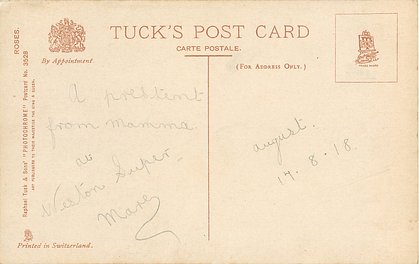 ROSES.
Raphael Tuck & Sons' "PHOTOCHROME" Postcard No. 3528
ART PUBLISHERS TO THEIR MAJESTIES THE KING & QUEEN.
By Appointment
TUCK'S POST CARD
CARTE POSTALE.
(FOR ADDRESS ONLY.)
A prestent
from Mamma.
at
Weston Super.
Mare
august.
17.8.18.
Printed in Switzerland.